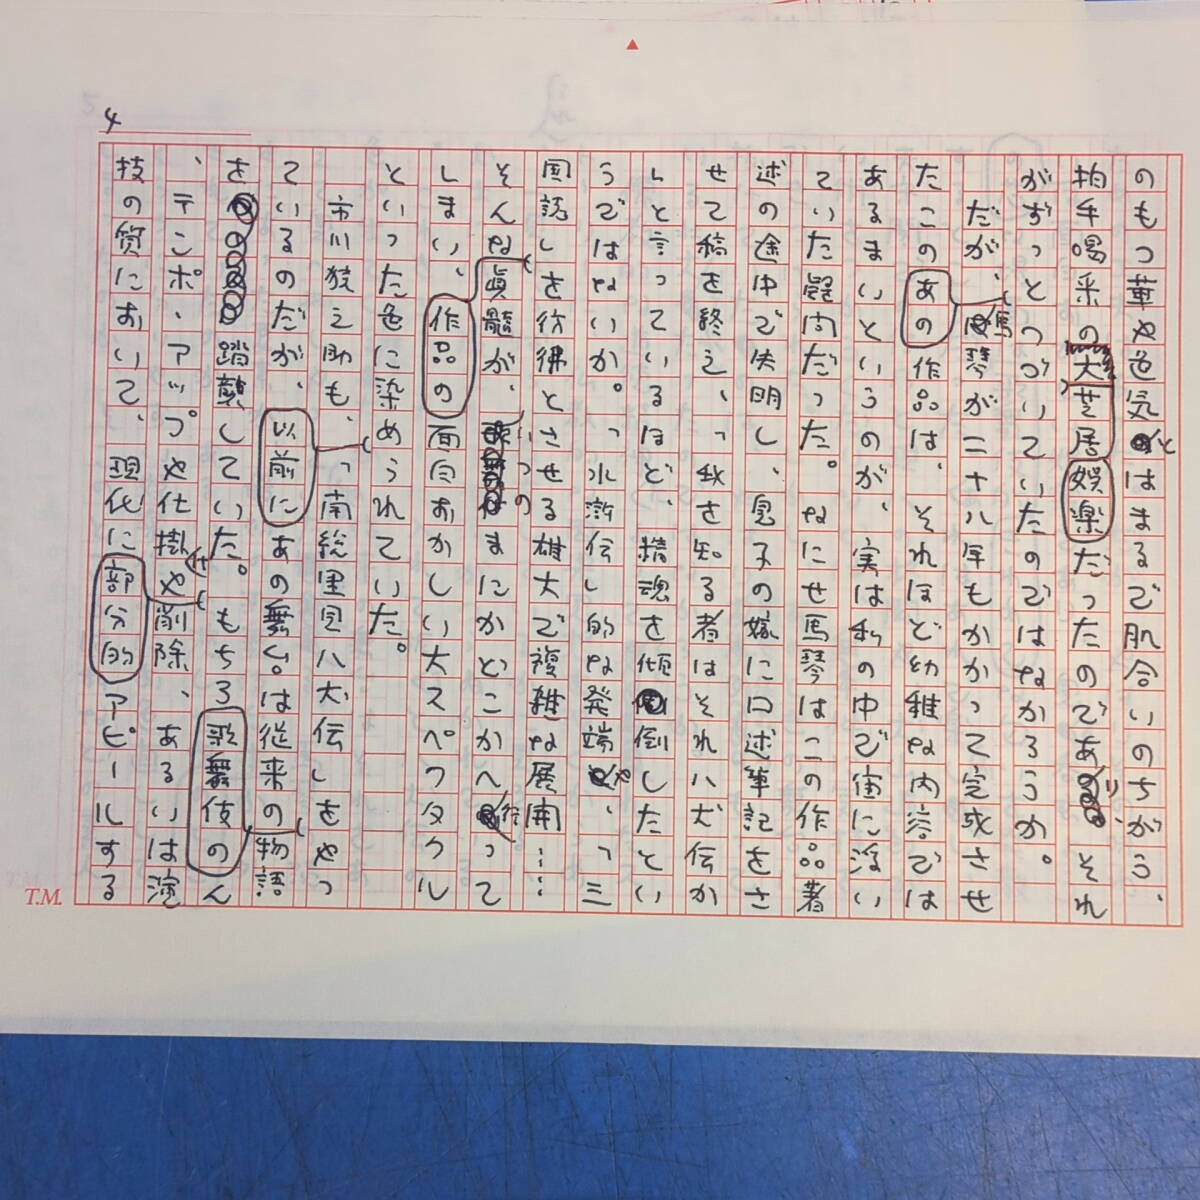 4
のもつ華や色気とはまるで肌合いのちがう、
拍手喝采の大芝居娯楽だったのであり、それ
がずっとつづいていたのではなかろうか。
だが、馬琴が二十八年もかかって完成させ
たこのあの作品は、それほど幼稚な内容では
あるまいというのが、実は私の中で宙に浮い
ていた疑問だった。なにせ馬琴はこの作品著
述の途中で失明し、息子の嫁に口述筆記をさ
せて稿を終え、「我を知る者はそれ八犬伝か
」と言っているほど、精魂を傾倒したとい
うではないか。「水滸伝」的な発端や、「三
国誌」を彷彿とさせる雄大で複雑な展開……
そんな真髄が、いつのまにかどこかへ行って
しまい、作品の面白おかしい大スペクタクル
といった色に染められていた。
市川猿之助も、「南総里見八犬伝」をやっ
ているのだが、以前にあの舞台は従来の物語
を踏襲していた。もちろ歌舞伎のん
、テンポ・アップや仕掛や削除、あるいは演
技の質において、現代に部分的アピールする
T.M.